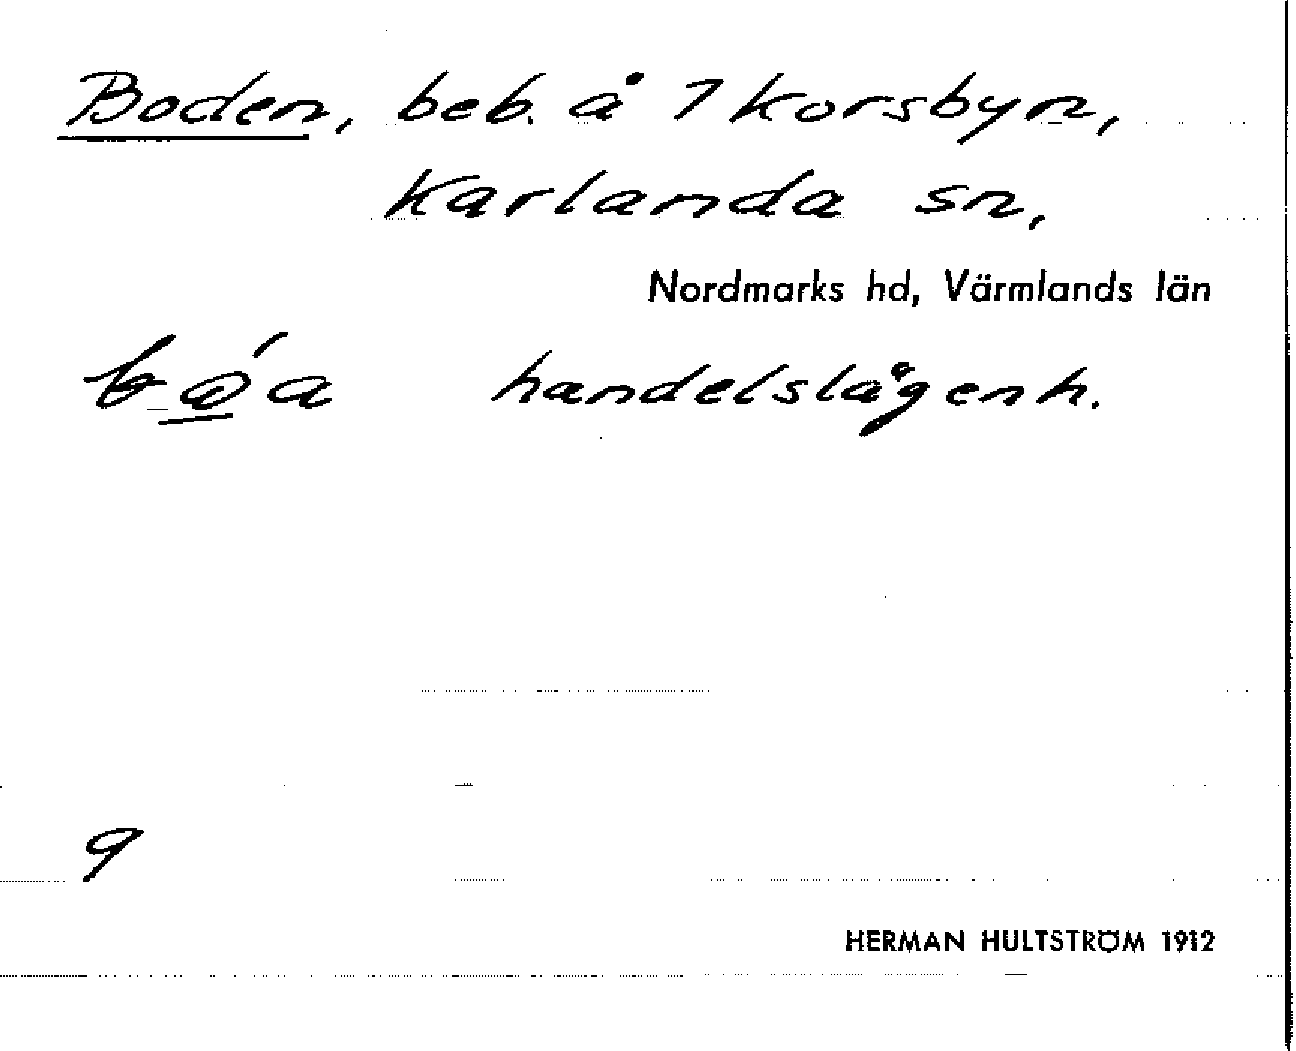 Boden, beb. å 7 Korsbyn,
Karlanda sn,
Nordmarks hd, Värmlands län
handelslägenh.
9
HERMAN HULTSTRÖM 1912